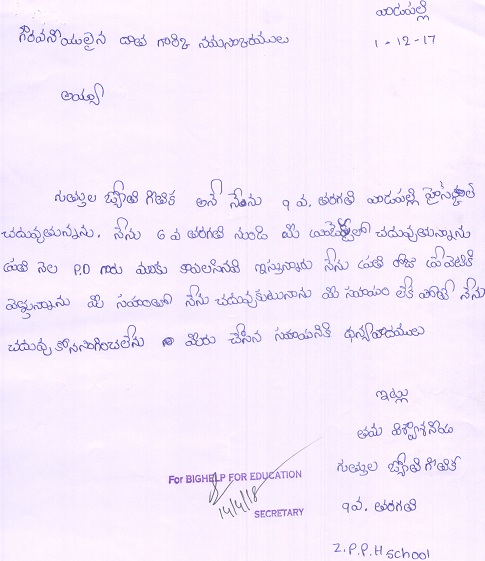 యిడుపల్లి
గౌరవనీయులైన దాత గారికి నమస్కారములు
1-12-17
అయ్యా
గుత్తుల జ్యోతి గీతిక అనే నేను 9 వ. తరగతి యిడుపల్లి హైస్కూల్
చదువుతున్నాను. నేను 6 వ తరగతి నుండి మీ చదువుతున్నాను
ప్రతి నెల P.D గారు మాకు కావలసినవి ఇస్తున్నారు నేను ప్రతి రోజు
వెళ్తున్నాను మీ సహాయంతో నేను చదువుకుటునాను మీ సహాయం లేక పోతే నేను
చదువు కొనసాగించలేను మీరు చేసిన సహాయనికి ధన్యవాదములు
ఇట్లు
తమ విశ్వాశనీయ
గుత్తుల జ్యోతి గీతిక
9వ. తరగతి
Z.P.P.H school
For BIGHELP FOR EDUCATION
14/4/18
SECRETARY